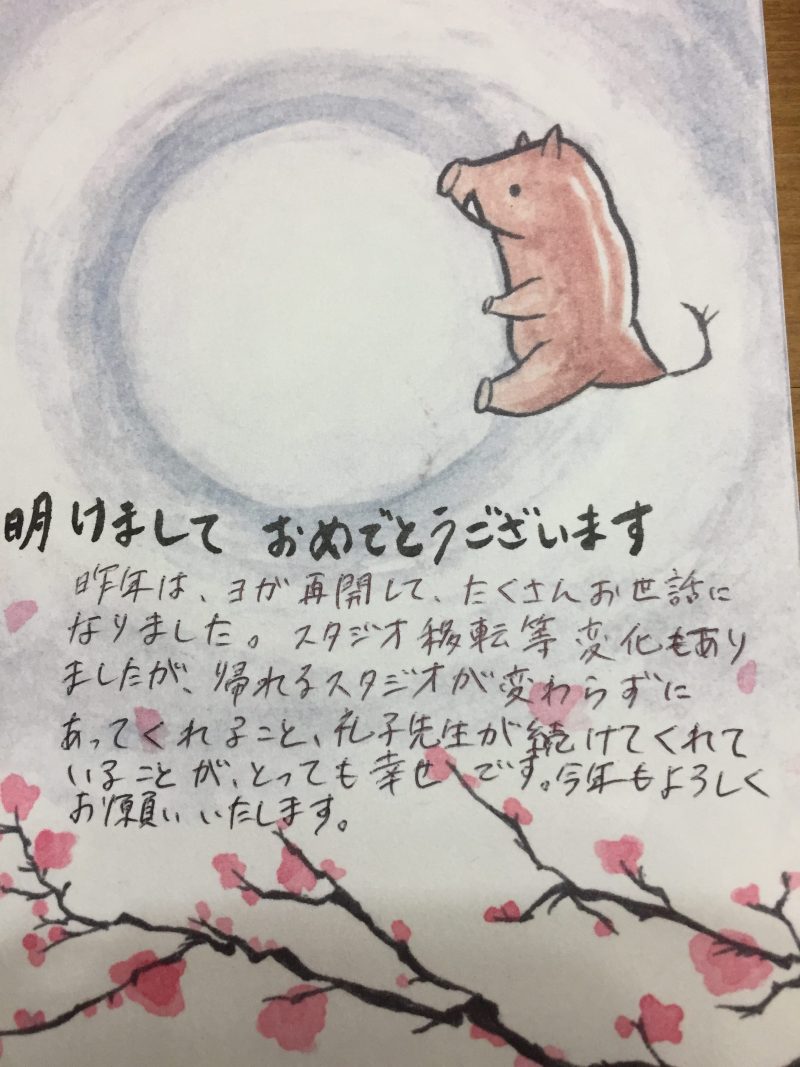 明けまして おめでとうございます
昨年は、ヨガ再開して、たくさんお世話に
なりました。スタジオ移転等変化もあり
ましたが、帰れるスタジオが変わらずに
あってくれること、礼子先生が続けてくれて
いることが、とっても幸せです。今年もよろしく
お願いいたします。